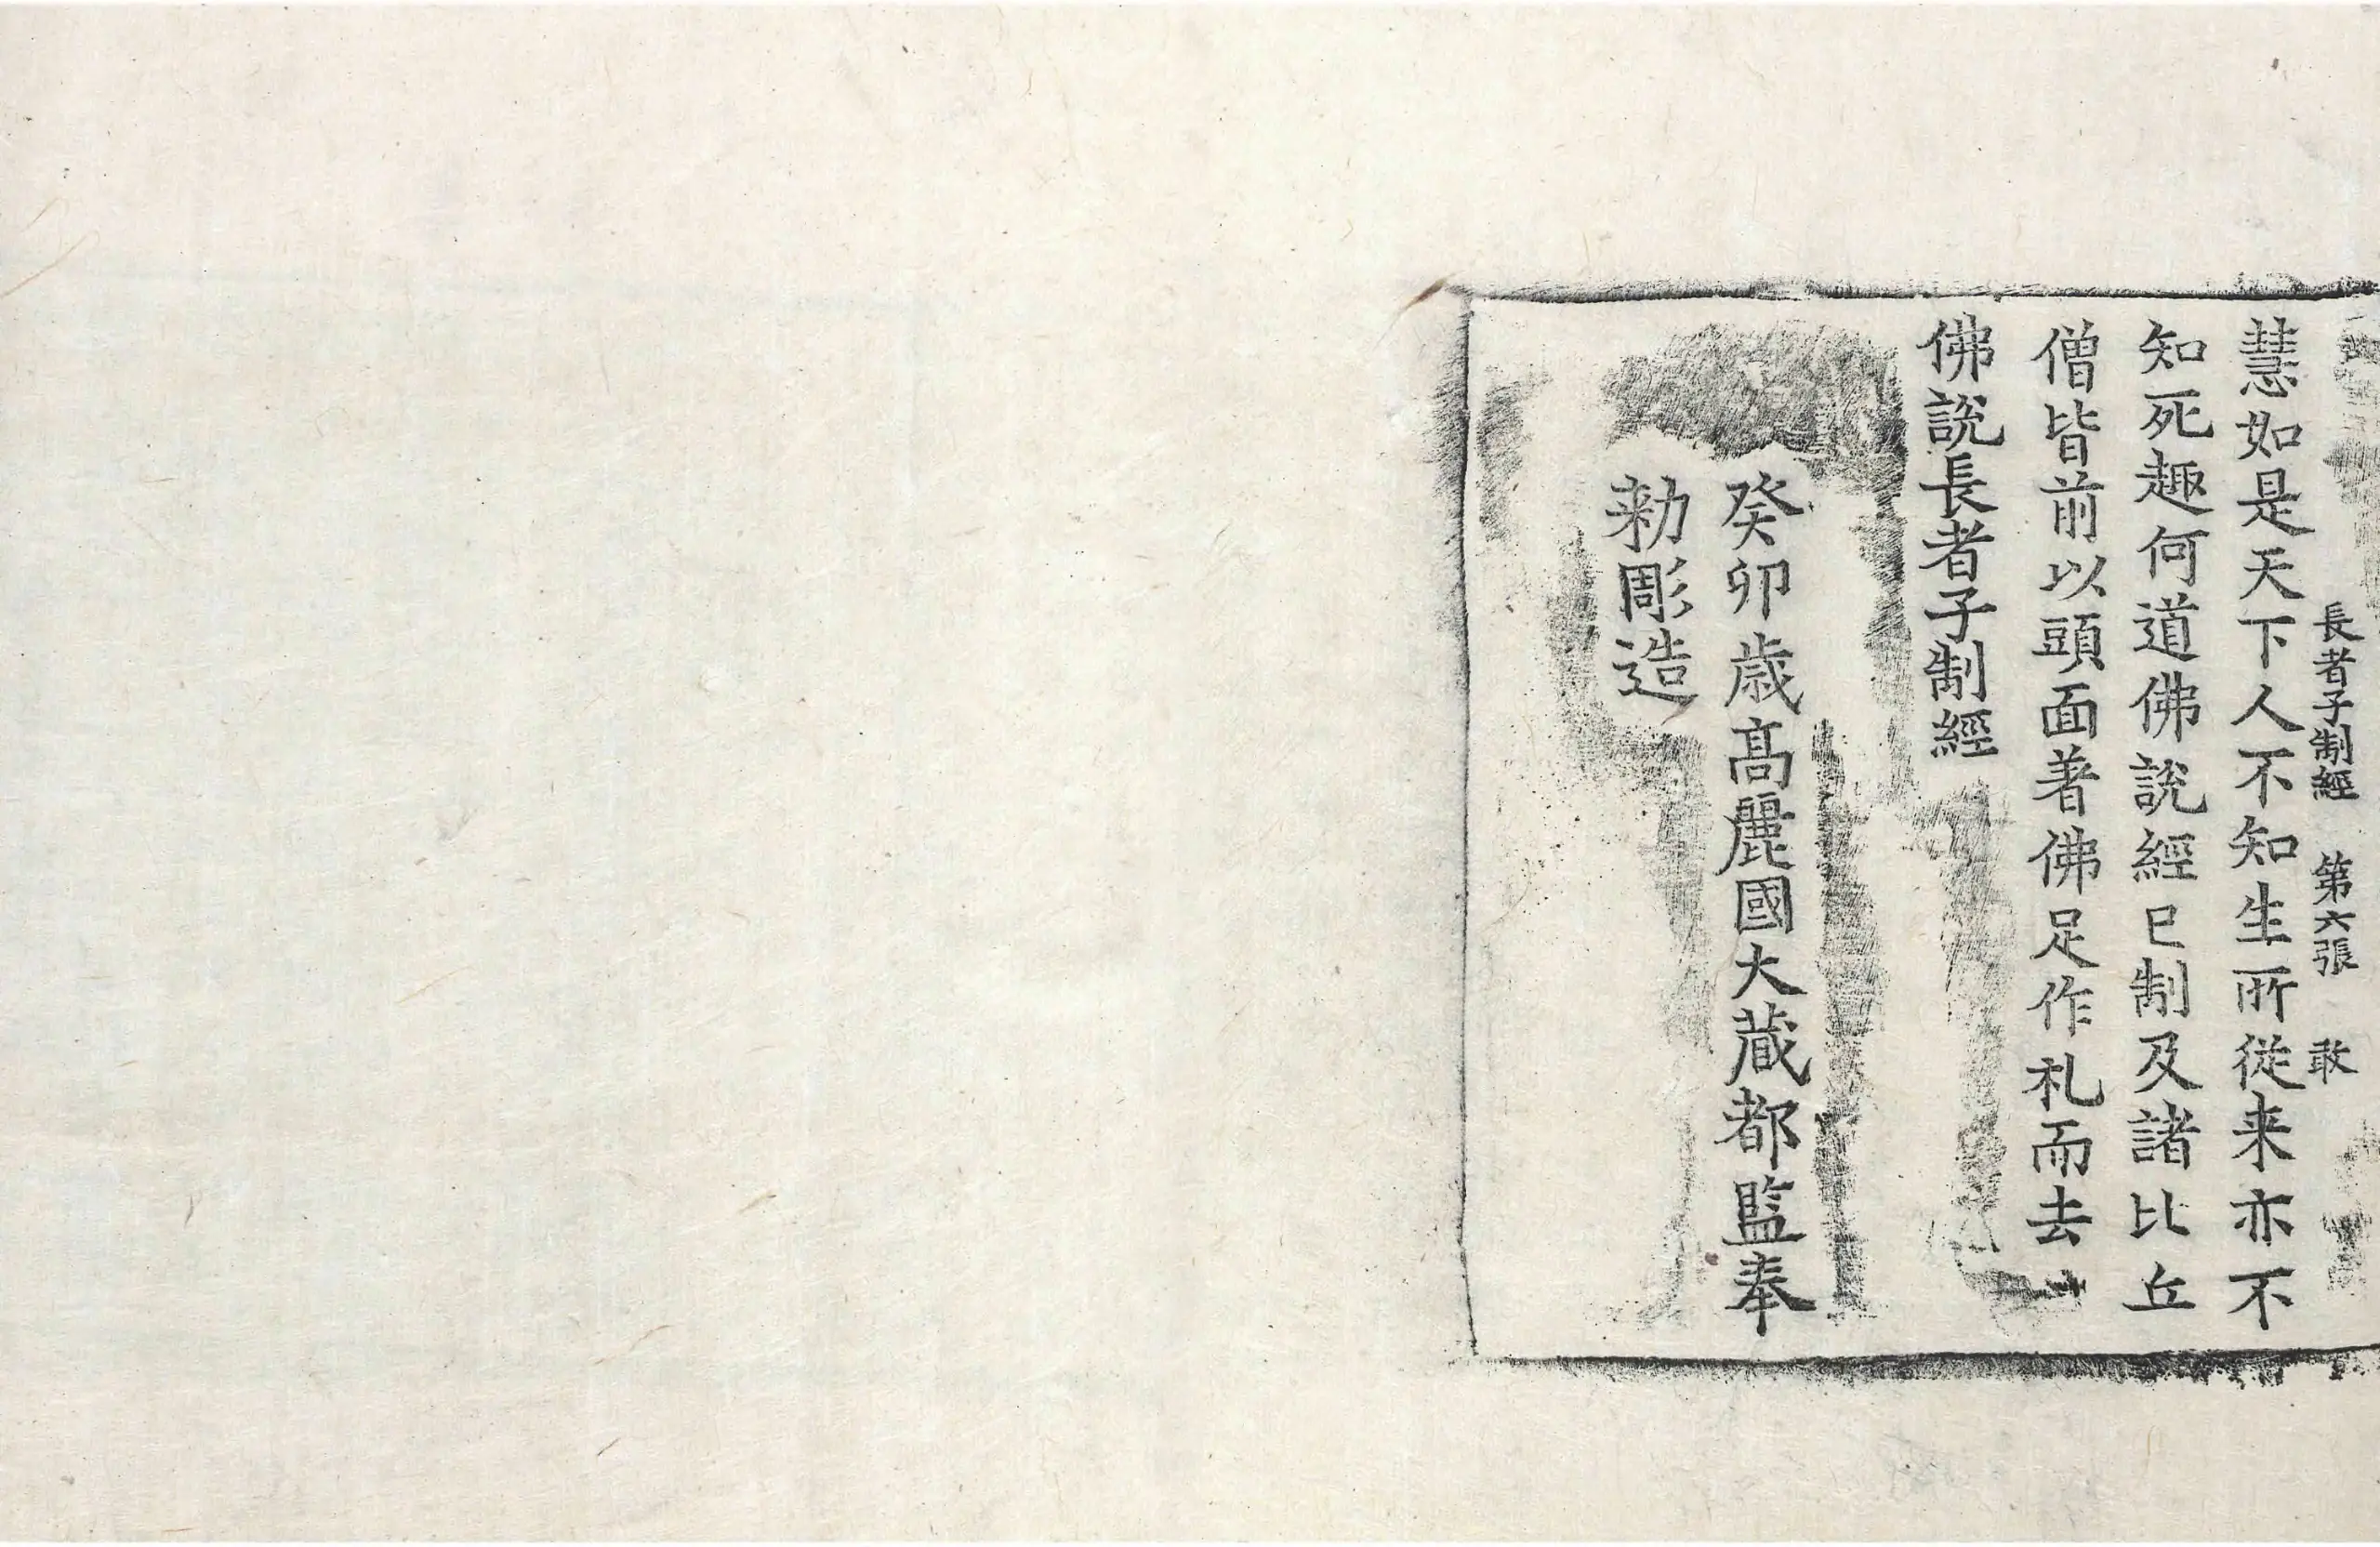 長者子制經 第六張 敢
慧如是天下人不知生所從来亦不
知死趣何道佛說經已制及諸比丘
僧皆前以頭面著佛足作礼而去
佛說長者子制經
癸卯歳髙麗國大藏都監奉
勑彫造